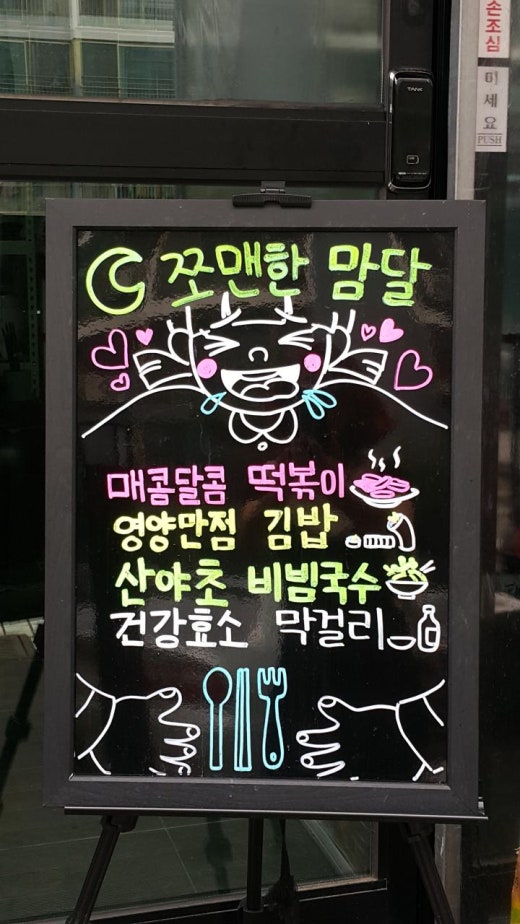 손조심
TANK
미세요
PUSH
쪼맨한 맘달
매콤달콤 떡볶이
영양만점 김밥
산야초 비빔국수
건강효소 막걸리